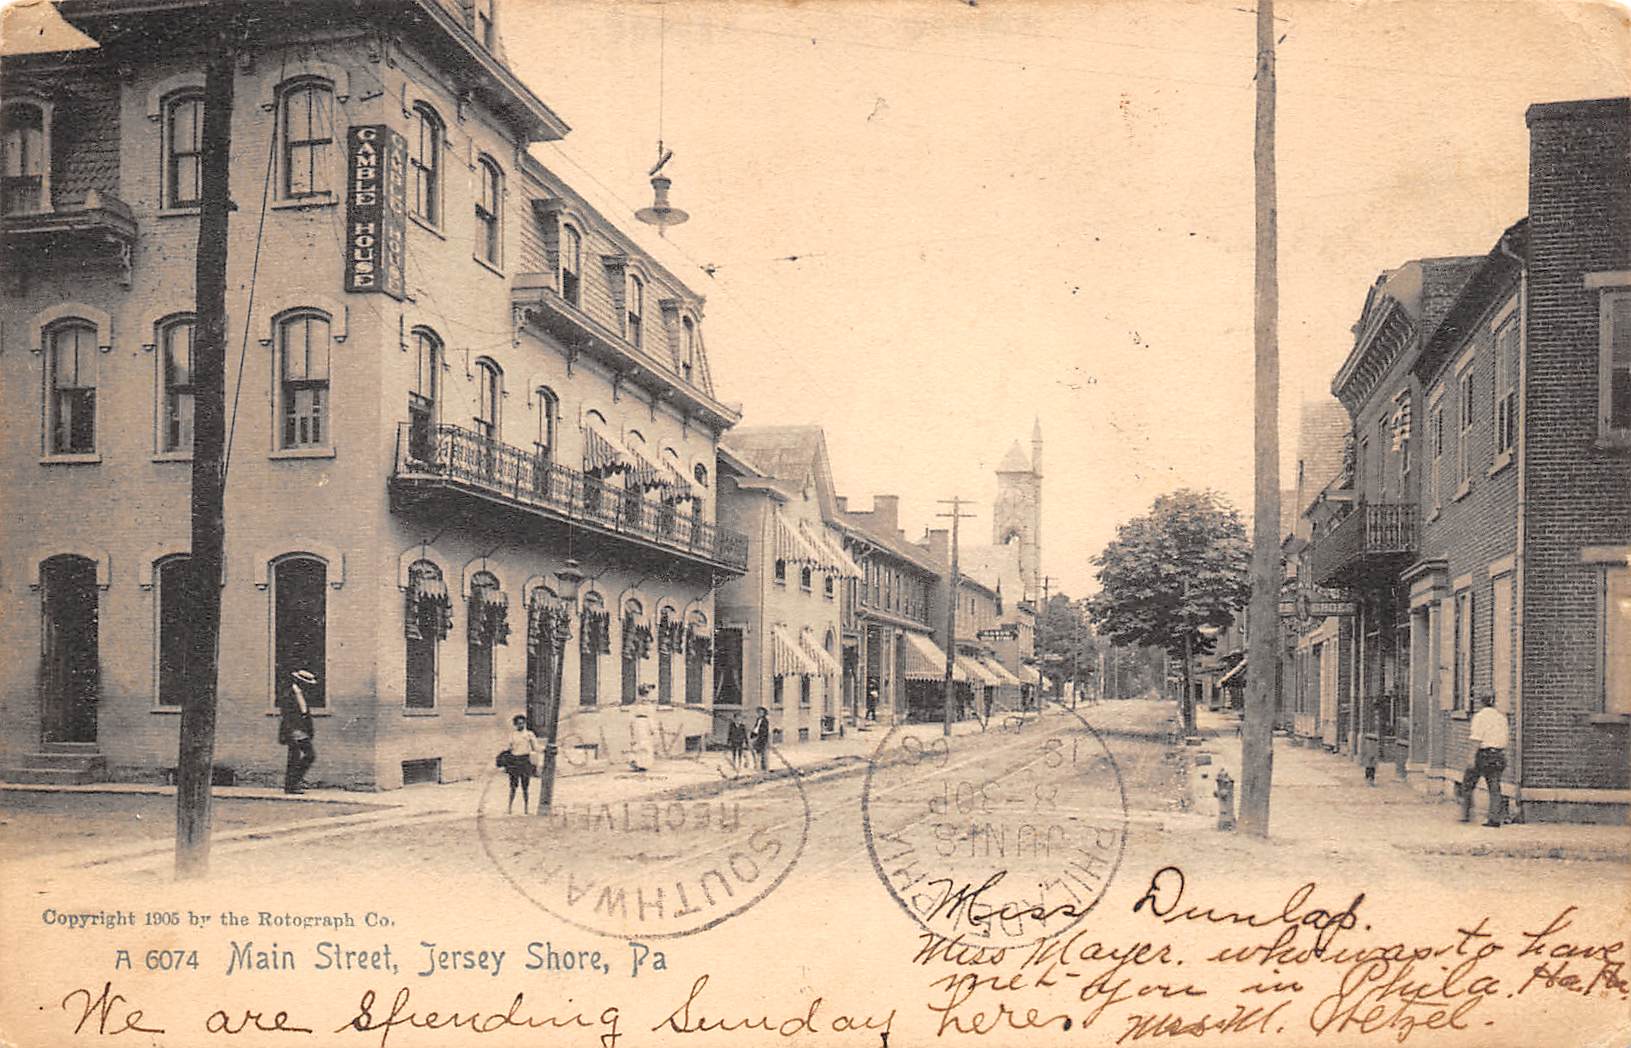 GAMBLE HOUSE
GAMBLE HOUSE
SHOES
SOUTHWARK
RECEIVED
PHILADELPHIA
JUN 18
8-30P
Copyright 1905 by the Rotograph Co.
A 6074 Main Street, Jersey Shore, Pa
Miss Dunlap.
Miss Mayer. who was to have
met you in Phila. Ha. Ha.
We are Spending Sunday here.
M. Wetzel.